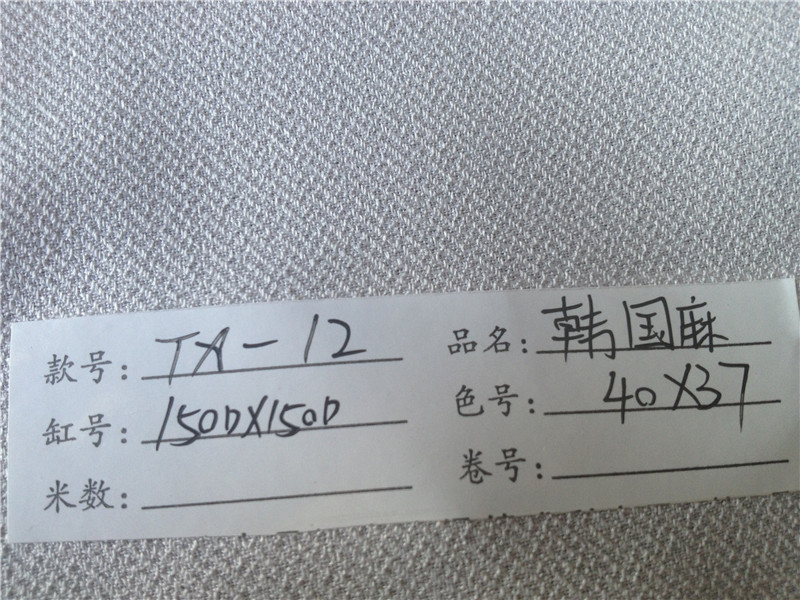 款号: TX-12 品名: 韩国麻
缸号: 150D×150D 色号: 40X37
米数: 卷号: